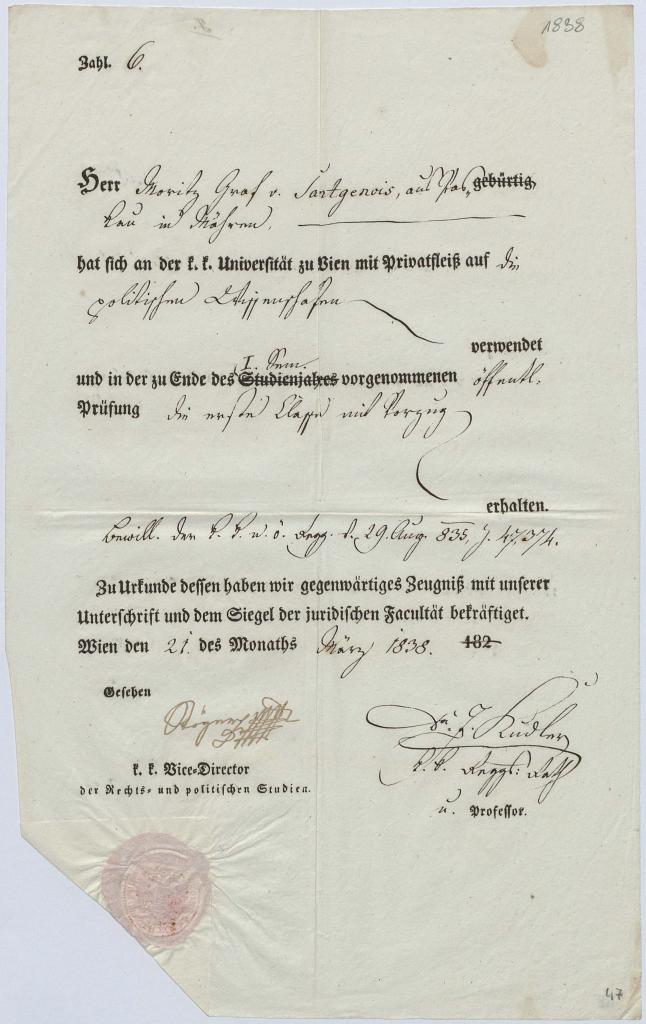 1838
Zahl. 6.
Herr Moritz Graf v. Saint-Genois, aus Pas- gebürtig,
kau in Mähren,
hat sich an der k. k. Universität zu Wien mit Privatfleiß auf die
politischen Wissenschaften
verwendet
I. Sem.
und in der zu Ende des Studienjahres vorgenommenen öffentl.
Prüfung die erste Classe mit Vorzug
erhalten.
Bewill. der k. k. n. ö. Regg. v. 29. Aug. 835, Z. 47,374.
Zu Urkunde dessen haben wir gegenwärtiges Zeugniß mit unserer
Unterschrift und dem Siegel der juridischen Facultät bekräftiget.
Wien den 21. des Monaths März 1838. 182
Gesehen
Dr. J. Kudler
k. k. Reggs: Rath
k. k. Vice-Director
der Rechts- und politischen Studien.
u. Professor.
47